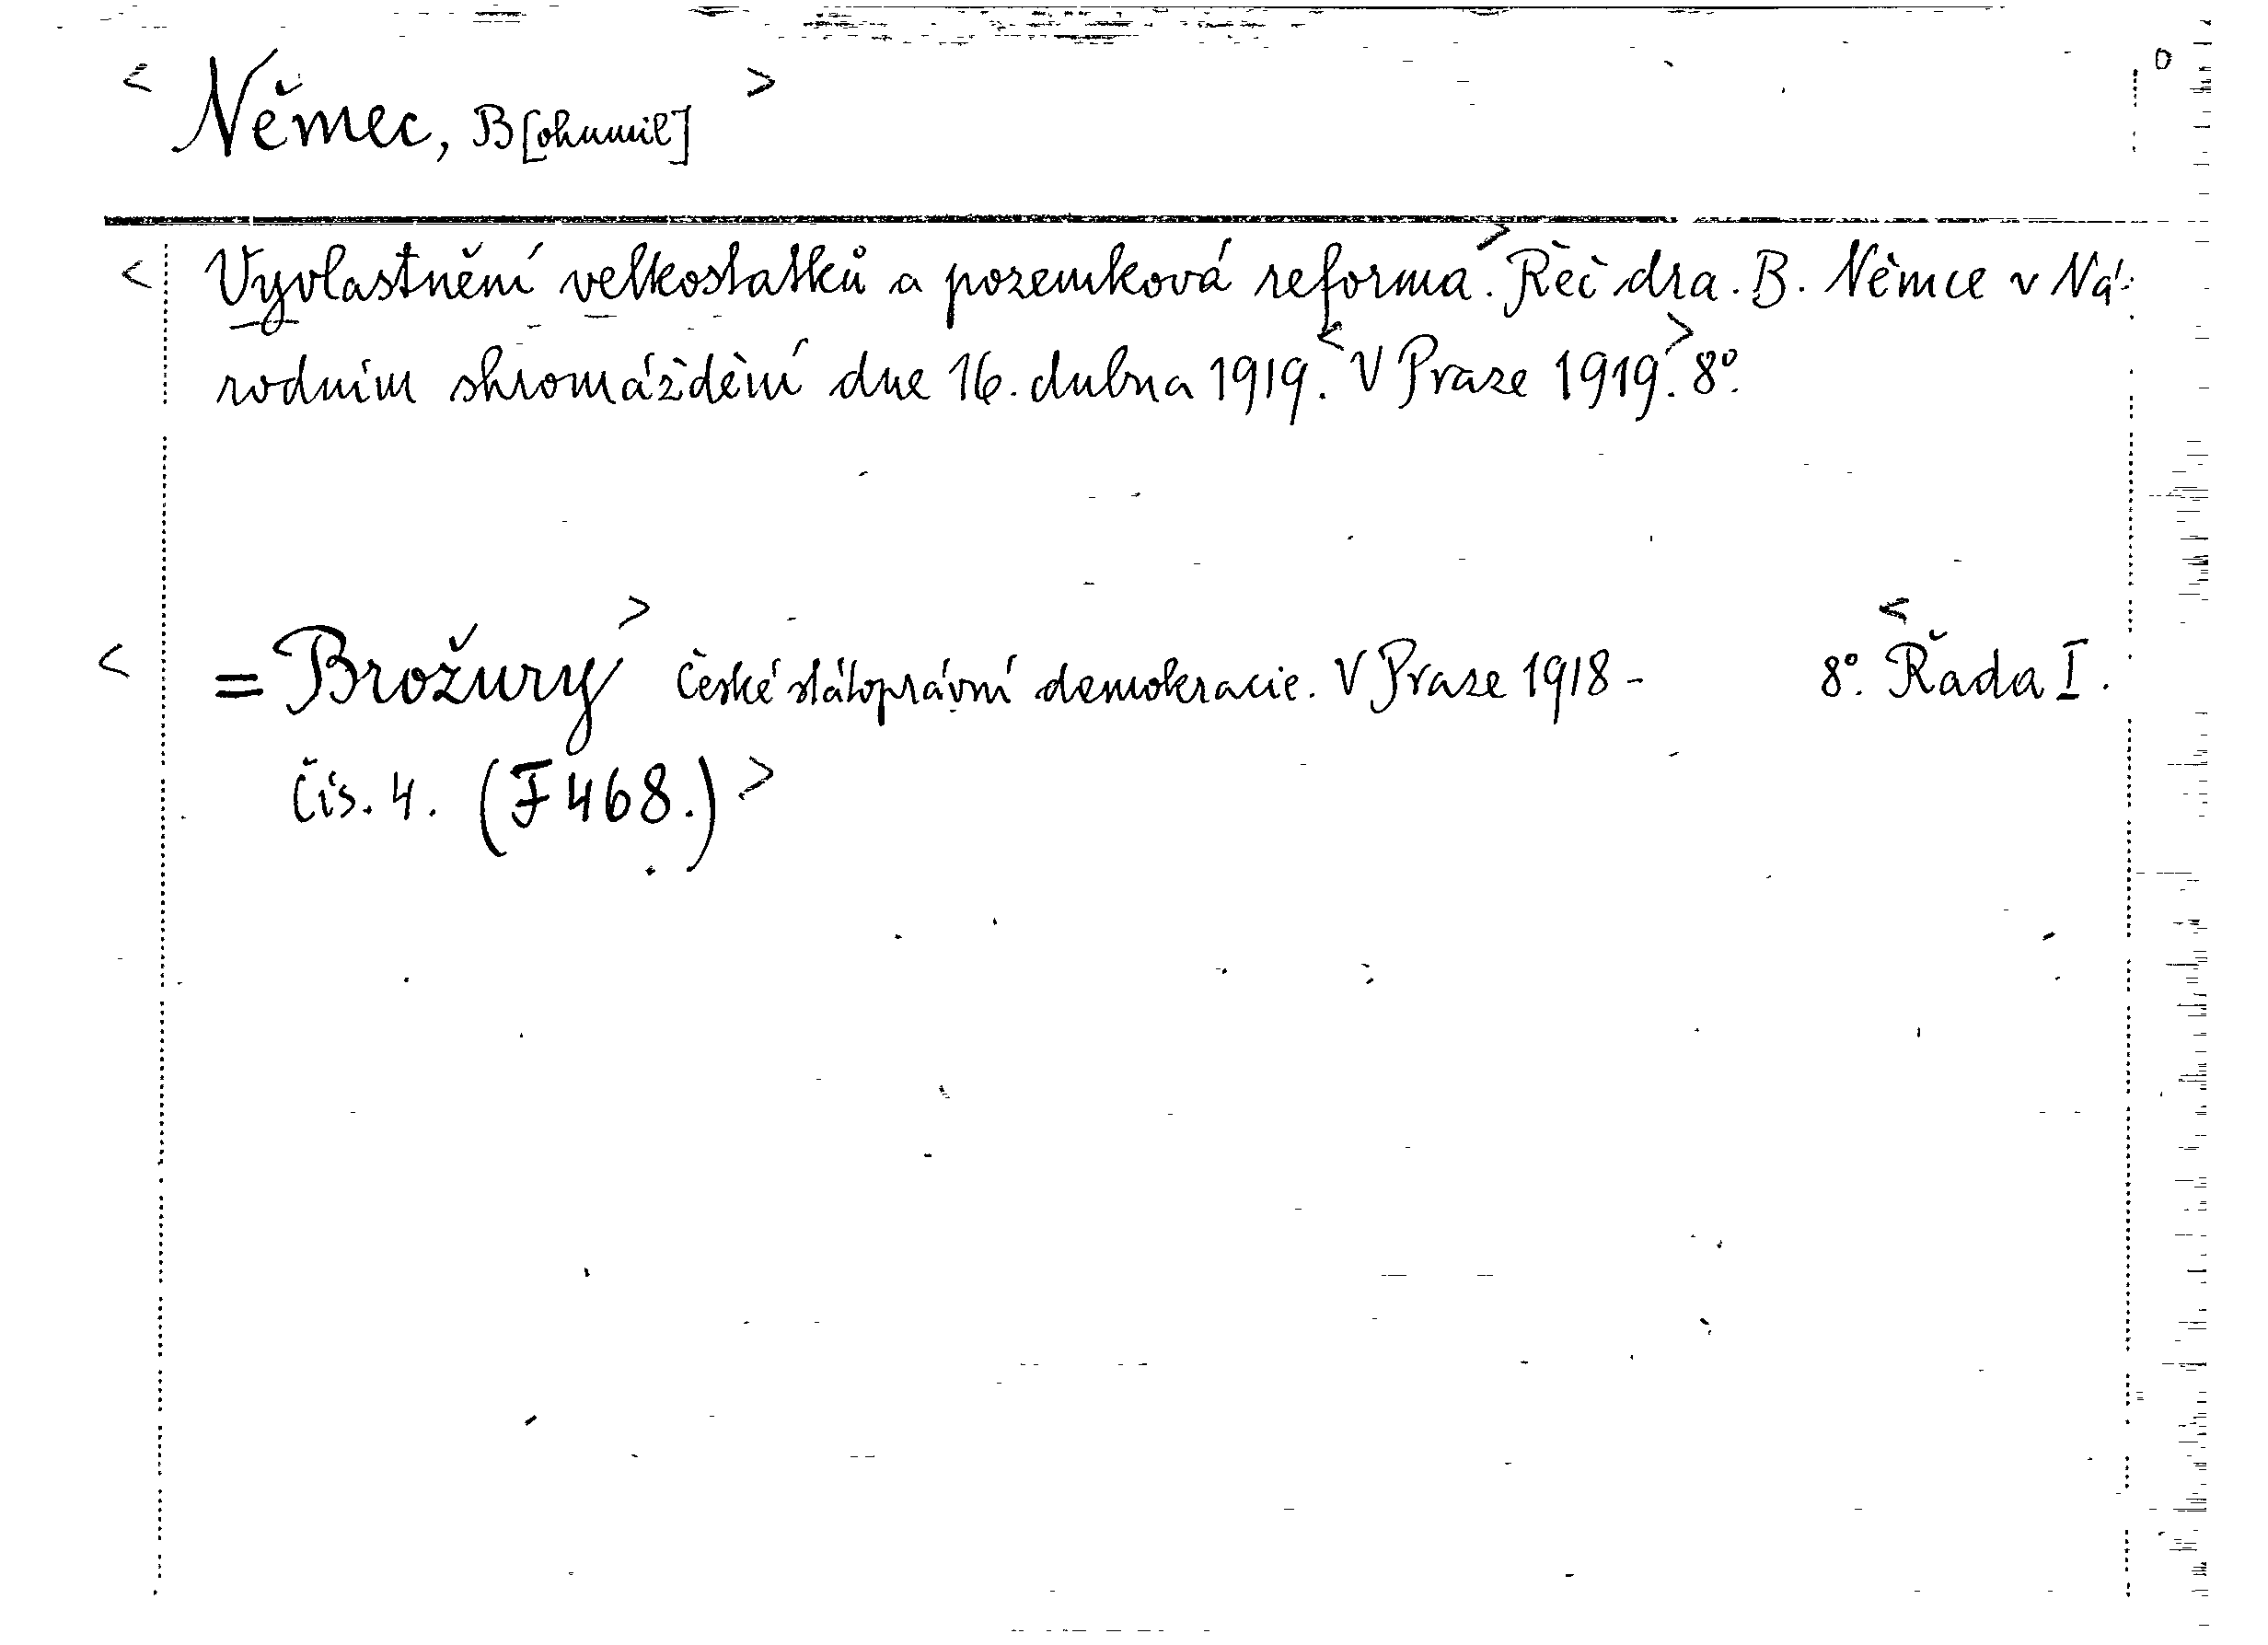 < Němec, B[ohumil] >
< Vyvlastnění velkostatků a pozemková reforma.> Řeč dra. B. Němce v Ná-
rodním shromáždění dne 16. dubna 1919. < V Praze 1919.> 8°.
< = Brožury > České státoprávní demokracie. V Praze 1918 - 8°. < Řada I.
Čís. 4. (F 468.) >